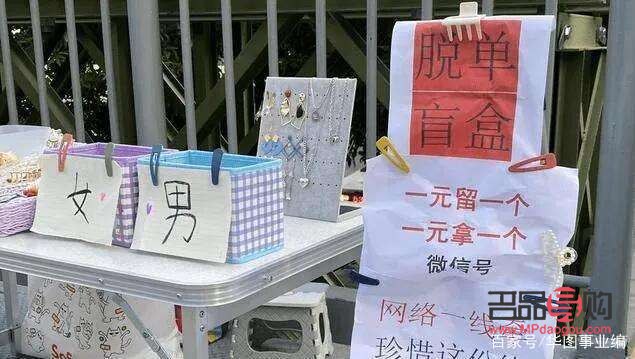 脱单
盲盒
一元留一个
一元拿一个
微信号
网络一线
珍惜这
女
男
名品导购
www.MPdaogou.com
百家号/华图事业编